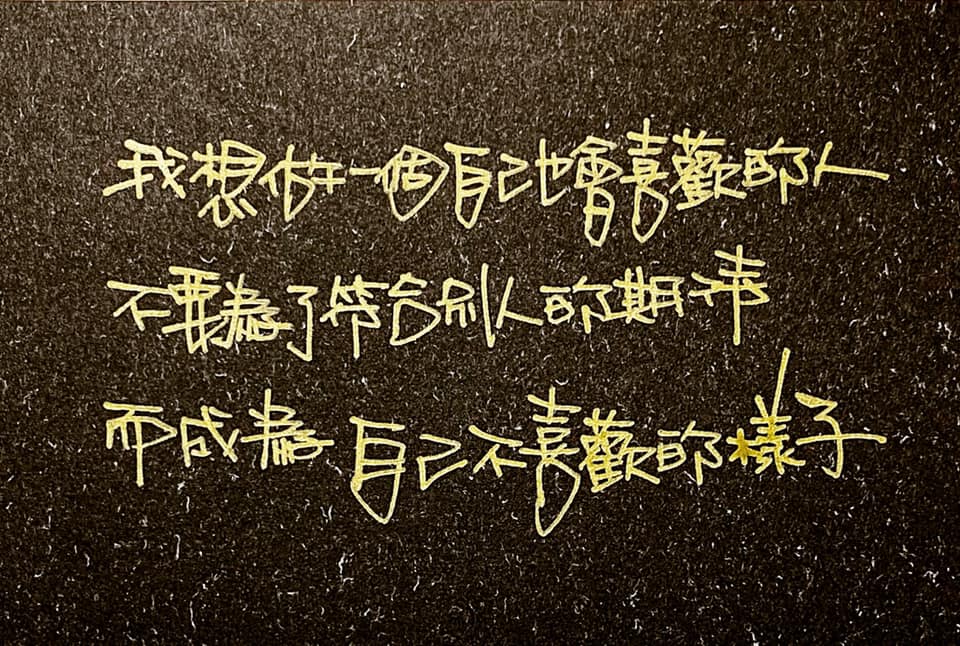 我想做一個自己也會喜歡的人
不要為了符合別人的期待
而成為自己不喜歡的樣子